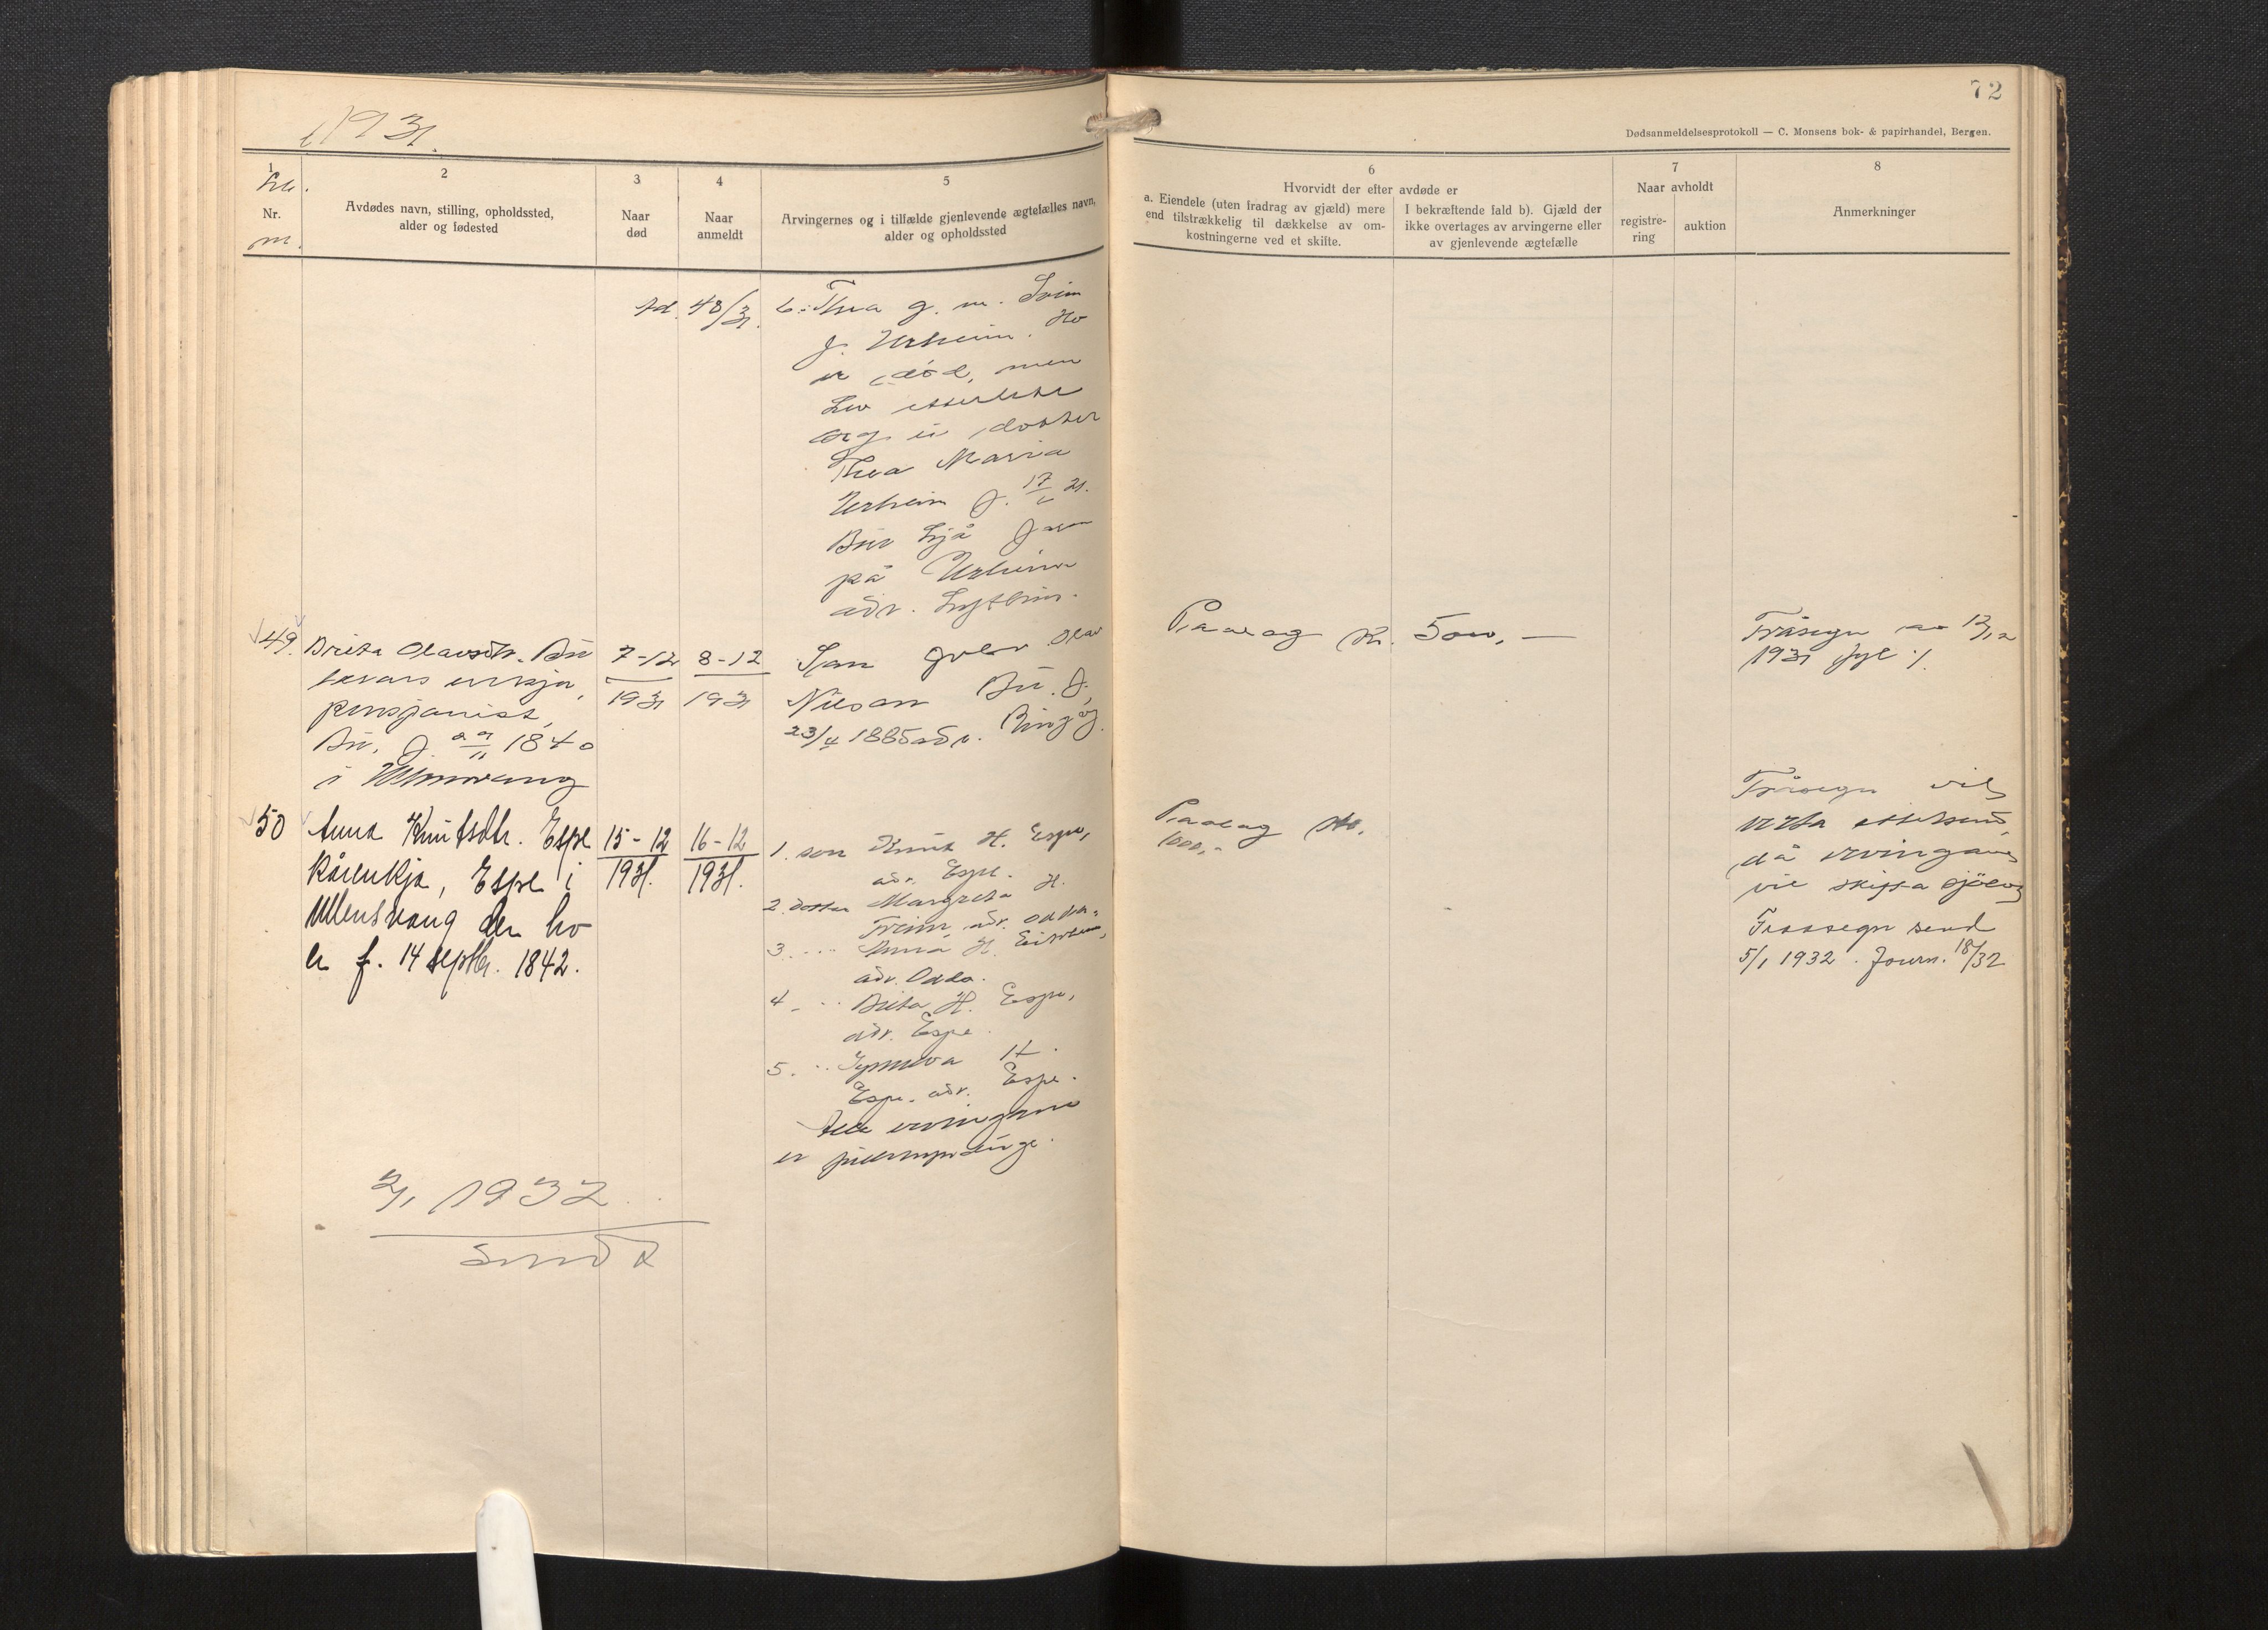 1931.
72
Dødsanmeldelsesprotokoll — C. Monsens bok- & papirhandel, Bergen.
1
Nr.
2
Avdødes navn, stilling, opholdssted,
alder og fødested
3
Naar
død
4
Naar
anmeldt
5
Arvingernes og i tilfælde gjenlevende ægtefælles navn,
alder og opholdssted
6
Hvorvidt der efter avdøde er
a. Eiendele (uten fradrag av gjæld) mere
end tilstrækkelig til dækkelse av om-
kostningerne ved et skifte.
I bekræftende fald b). Gjæld der
ikke overtages av arvingerne eller
av gjenlevende ægtefælle
7
Naar avholdt
registre-
ring
auktion
8
Anmerkninger
48/31.
6: Thea g. m. Svein
J. Urheim. Ho
er død, men
hev etterlete
seg ei dotter
Thea Maria
Urheim f. 17/6 21.
Bur hjå faren
på Urheim
adr. Lofthus.
49. Brita Olavsdtr. Bu
enkja,
pensjonist,
Bu, f. 1840
i Ullensvang
7-12
1931
8-12
1931
Son Olav
Nilsson Bu. f.
23/4 1885 adr. Ringøy.
Paalag Kr. 500,—
Fråsegn av 12/12
1931 fyl /.
50 Anna Knutsdtr. Espe
kårenkja, Espe i
Ullensvang der ho
er f. 14 septbr. 1842.
15-12
1931.
16-12
1931.
1. son Knut H. Espe,
adr. Espe.
2. dotter Margreta H.
Freim, adr. Odda.
3. .. Anna H. Eitrheim,
adr. Odda.
4. .. Brita H. Espe,
adr. Espe.
5. .. Synneva H.
Espe. adr. Espe.
Alle ervingane
er fullmyndige.
Paalag kr.
1000,-
Fråsegn vil
verta ettersend,
då ervingane
vil skifta sjølve
Fraasegn send
5/1 1932. Journ. 18/32
2/1 1932